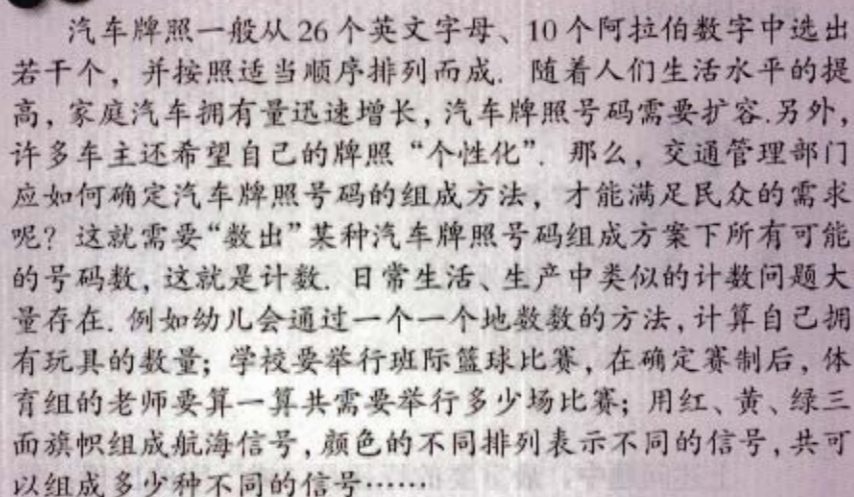 汽车牌照一般从26个英文字母、10个阿拉伯数字中选出
若干个，并按照适当顺序排列而成. 随着人们生活水平的提
高，家庭汽车拥有量迅速增长，汽车牌照号码需要扩容.另外，
许多车主还希望自己的牌照“个性化”. 那么，交通管理部门
应如何确定汽车牌照号码的组成方法，才能满足民众的需求
呢？这就需要“数出”某种汽车牌照号码组成方案下所有可能
的号码数，这就是计数. 日常生活、生产中类似的计数问题大
量存在. 例如幼儿会通过一个一个地数数的方法，计算自己拥
有玩具的数量；学校要举行班际篮球比赛，在确定赛制后，体
育组的老师要算一算共需要举行多少场比赛；用红、黄、绿三
面旗帜组成航海信号，颜色的不同排列表示不同的信号，共可
以组成多少种不同的信号……